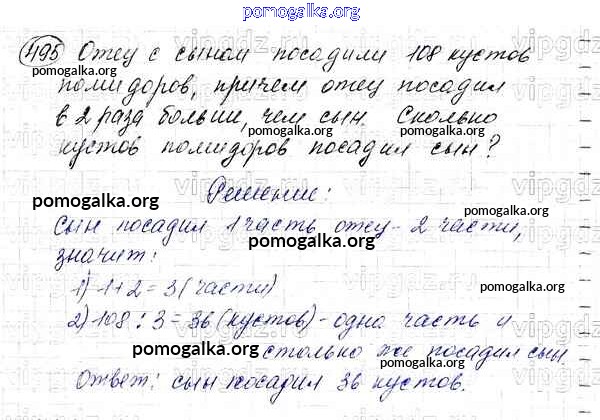 pomogalka.org
495 Отец с сыном посадили 108 кустов
помидоров, причем отец посадил
в 2 раза больше, чем сын. Сколько
кустов помидоров посадил сын?
Решение:
Сын посадил 1 часть отец - 2 части,
значит:
1) 1+2=3 (части)
2) 108:3=36 (кустов) - одна часть и
столько же посадил сын
Ответ: сын посадил 36 кустов.
pomogalka.org
pomogalka.org
pomogalka.org
pomogalka.org
pomogalka.org
pomogalka.org
pomogalka.org
pomogalka.org
pomogalka.org
pomogalka.org
pomogalka.org